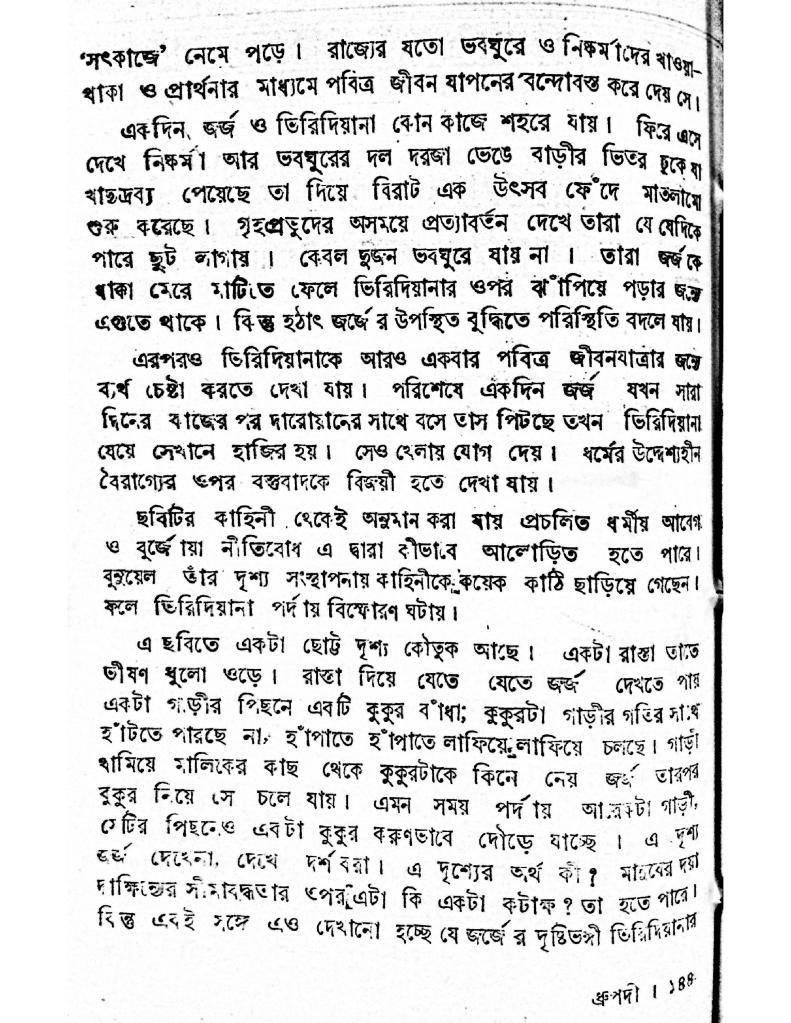 ‘সৎকাজে’ নেমে পড়ে। রাজ্যের যতো ভবঘুরে ও নিষ্কর্মাদের খাওয়া-
থাকা ও প্রার্থনার মাধ্যমে পবিত্র জীবন যাপনের বন্দোবস্ত করে দেয় সে।
একদিন, জর্জ ও ভিরিদিয়ানা কোন কাজে শহরে যায়। ফিরে এসে
দেখে নিষ্কর্মা আর ভবঘুরের দল দরজা ভেঙে বাড়ীর ভিতর ঢুকে যা
খাদ্যদ্রব্য পেয়েছে তা দিয়ে বিরাট এক উৎসব ফেঁদে মাতলামো
শুরু করেছে। গৃহপ্রভুদের অসময়ে প্রত্যাবর্তন দেখে তারা যে যেদিকে
পারে ছুট লাগায়। কেবল দুজন ভবঘুরে যায় না। তারা জর্জকে
ধাক্কা মেরে মাটিতে ফেলে ভিরিদিয়ানার ওপর ঝাঁপিয়ে পড়ার জন্য
এগুতে থাকে। কিন্তু হঠাৎ জর্জের উপস্থিত বুদ্ধিতে পরিস্থিতি বদলে যায়।
এরপরও ভিরিদিয়ানাকে আরও একবার পবিত্র জীবনযাত্রার জন্যে
ব্যর্থ চেষ্টা করতে দেখা যায়। পরিশেষে একদিন জর্জ যখন সারা
দিনের কাজের পর দারোয়ানের সাথে বসে তাস পিটছে তখন ভিরিদিয়ানা
যেয়ে সেখানে হাজির হয়। সেও খেলায় যোগ দেয়। ধর্মের উদ্দেশ্যহীন
বৈরাগ্যের ওপর বস্তুবাদকে বিজয়ী হতে দেখা যায়।
ছবিটির কাহিনী থেকেই অনুমান করা যায় প্রচলিত ধর্মীয় আবেগ
ও বুর্জোয়া নীতিবোধ এ দ্বারা কীভাবে আলোড়িত হতে পারে।
বুনুয়েল তাঁর দৃশ্য সংস্থাপনায় কাহিনীকে কয়েক কাঠি ছাড়িয়ে গেছেন।
ফলে ভিরিদিয়ানা পর্দায় বিস্ফোরণ ঘটায়।
এ ছবিতে একটা ছোট্ট দৃশ্য কৌতুক আছে। একটা রাস্তা তাতে
ভীষণ ধুলো ওড়ে। রাস্তা দিয়ে যেতে যেতে জর্জ দেখতে পায়
একটা গাড়ীর পিছনে একটি কুকুর বাঁধা; কুকুরটা গাড়ীর গতির সাথে
হাঁটতে পারছে না, হাঁপাতে হাঁপাতে লাফিয়ে লাফিয়ে চলছে। গাড়ী
থামিয়ে মালিকের কাছ থেকে কুকুরটাকে কিনে নেয় জর্জ তারপর
কুকুর নিয়ে সে চলে যায়। এমন সময় পর্দায় আরেকটা গাড়ী,
সেটির পিছনেও একটা কুকুর করুণভাবে দৌড়ে যাচ্ছে। এ দৃশ্য
জর্জ দেখেনা, দেখে দর্শকরা। এ দৃশ্যের অর্থ কী? মানুষের দয়া
দাক্ষিণ্যের সীমাবদ্ধতার ওপর এটা কি একটা কটাক্ষ? তা হতে পারে।
কিন্তু একই সঙ্গে এও দেখানো হচ্ছে যে জর্জের দৃষ্টিভঙ্গী ভিরিদিয়ানার
ধ্রুপদী।